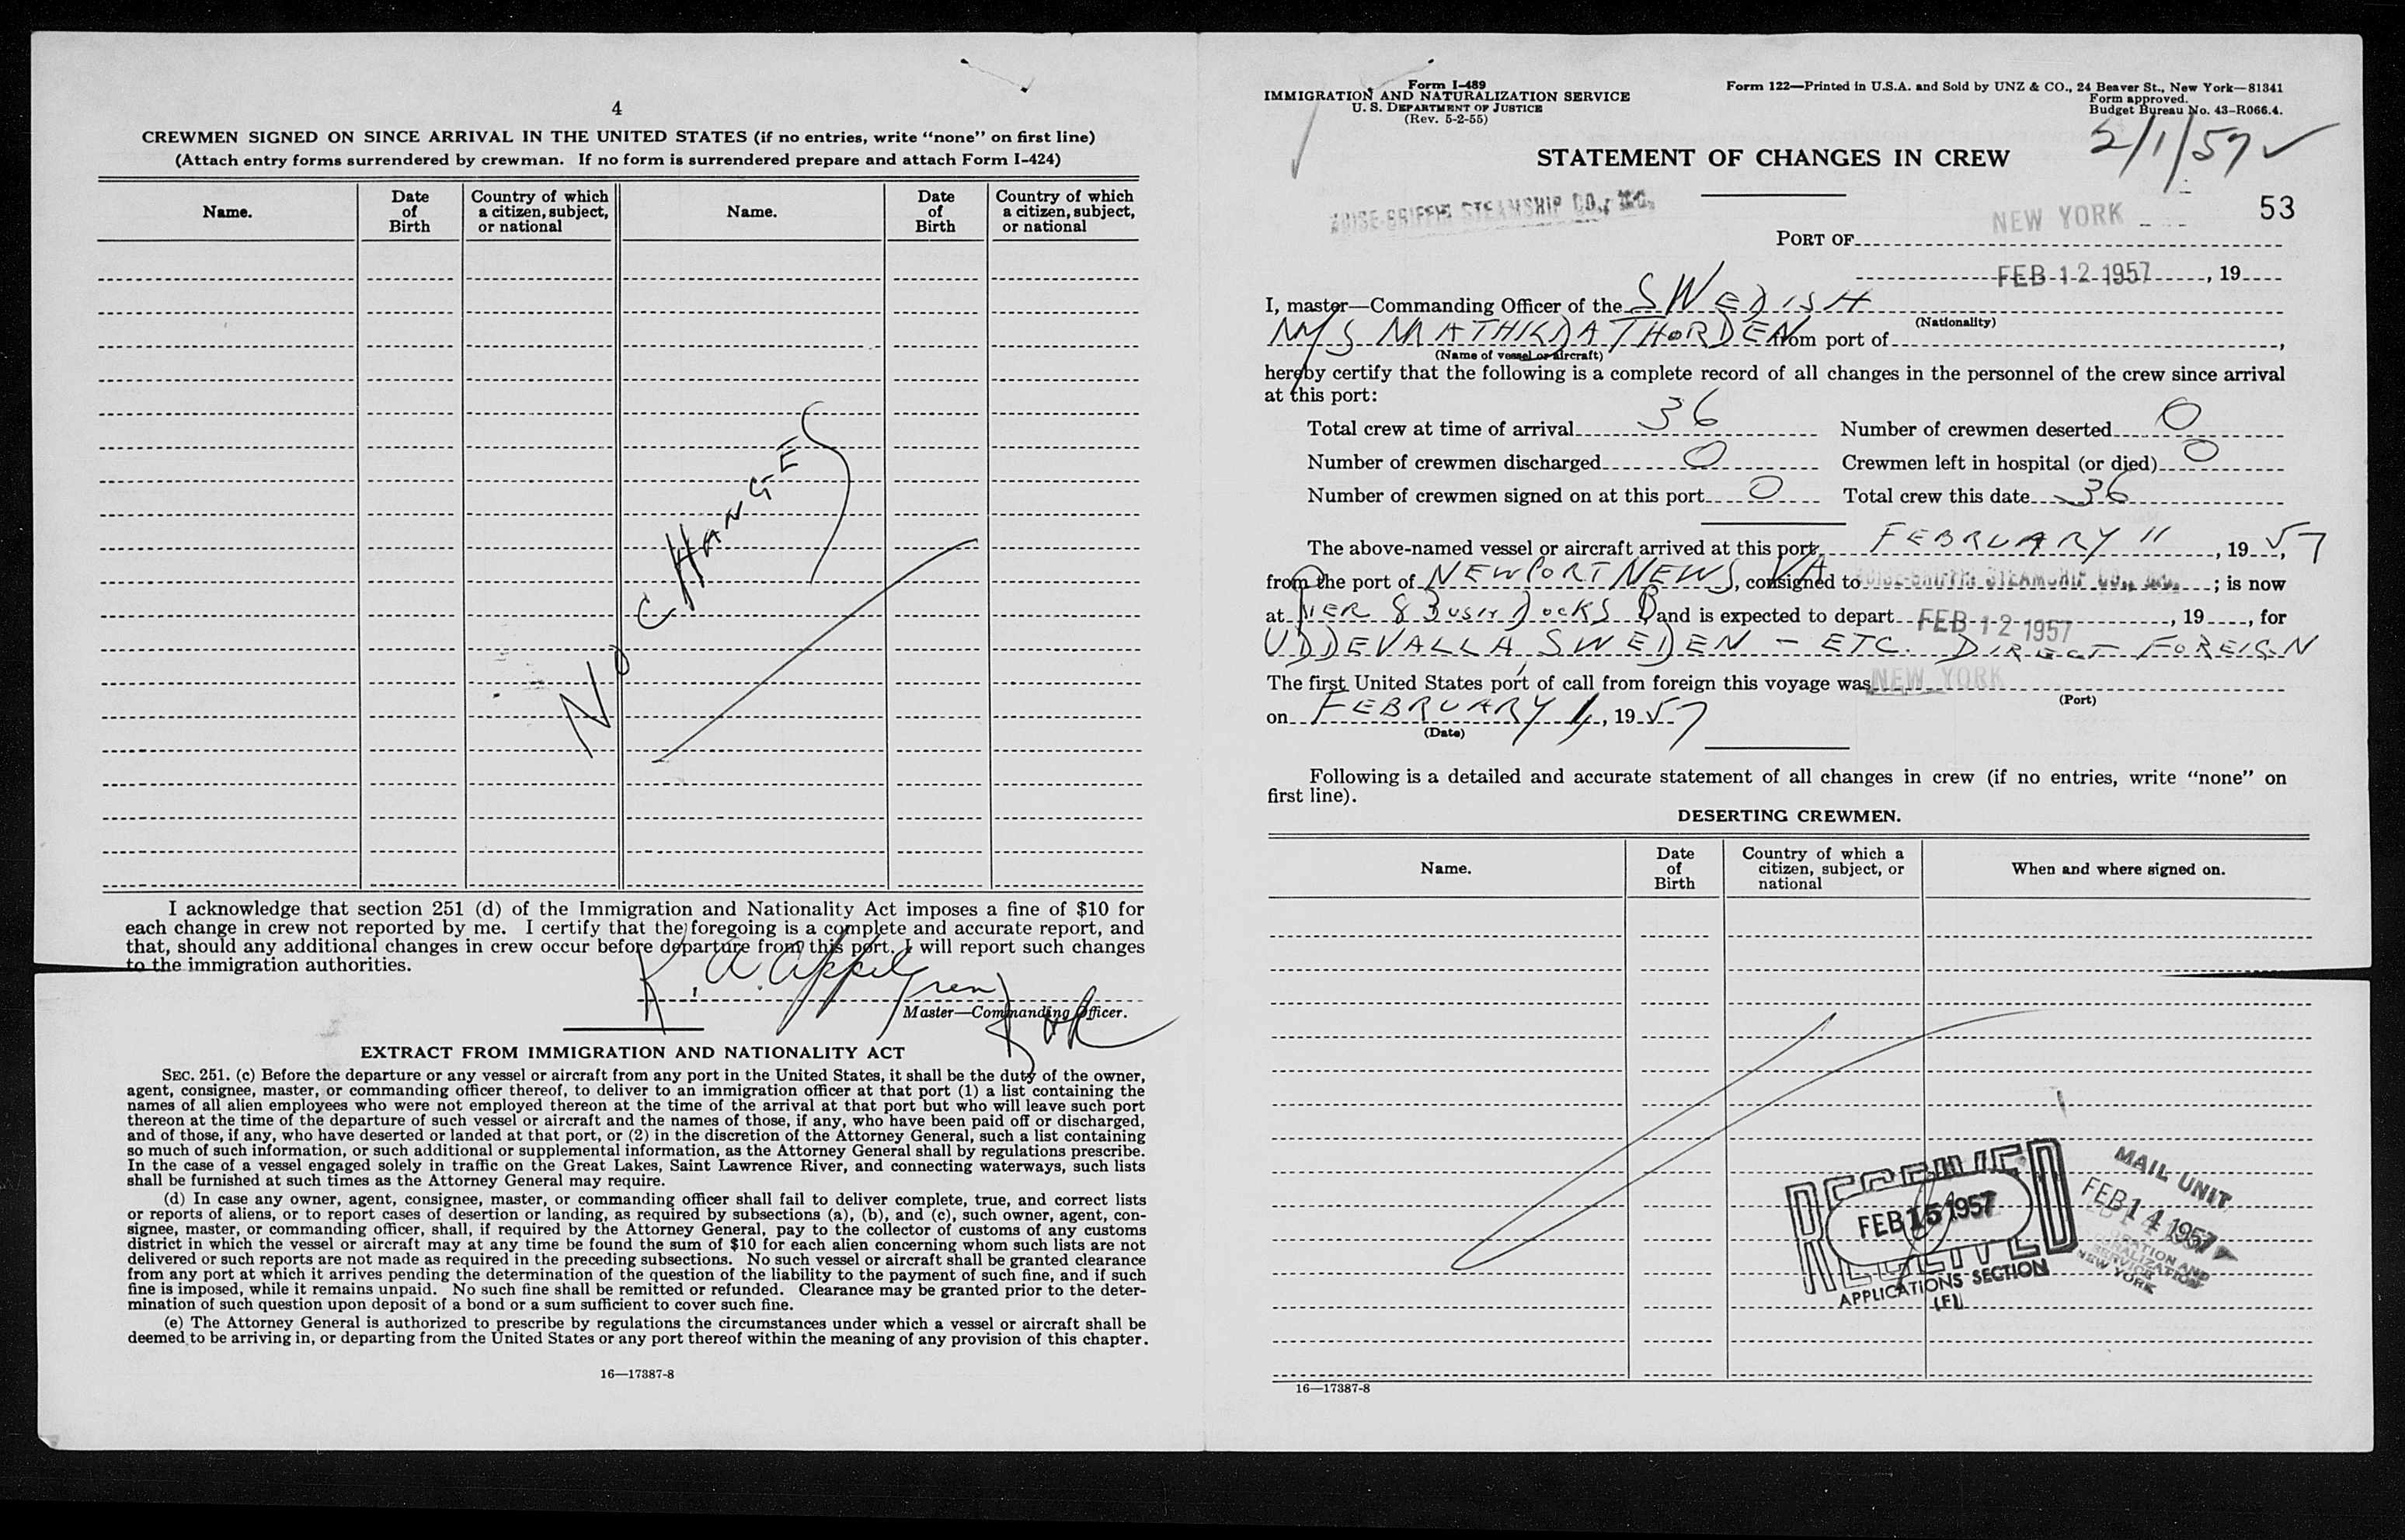 4
CREWMEN SIGNED ON SINCE ARRIVAL IN THE UNITED STATES (if no entries, write “none” on first line)
(Attach entry forms surrendered by crewman. If no form is surrendered prepare and attach Form I-424)
Name. Date of Birth Country of which a citizen, subject, or national Name. Date of Birth Country of which a citizen, subject, or national
NO CHANGES
I acknowledge that section 251 (d) of the Immigration and Nationality Act imposes a fine of $10 for
each change in crew not reported by me. I certify that the foregoing is a complete and accurate report, and
that, should any additional changes in crew occur before departure from this port, I will report such changes
to the immigration authorities.
K. A. Appelgren
Master—Commanding Officer.
EXTRACT FROM IMMIGRATION AND NATIONALITY ACT
SEC. 251. (c) Before the departure or any vessel or aircraft from any port in the United States, it shall be the duty of the owner,
agent, consignee, master, or commanding officer thereof, to deliver to an immigration officer at that port (1) a list containing the
names of all alien employees who were not employed thereon at the time of the arrival at that port but who will leave such port
thereon at the time of the departure of such vessel or aircraft and the names of those, if any, who have been paid off or discharged,
and of those, if any, who have deserted or landed at that port, or (2) in the discretion of the Attorney General, such a list containing
so much of such information, or such additional or supplemental information, as the Attorney General shall by regulations prescribe.
In the case of a vessel engaged solely in traffic on the Great Lakes, Saint Lawrence River, and connecting waterways, such lists
shall be furnished at such times as the Attorney General may require.
(d) In case any owner, agent, consignee, master, or commanding officer shall fail to deliver complete, true, and correct lists
or reports of aliens, or to report cases of desertion or landing, as required by subsections (a), (b), and (c), such owner, agent, con-
signee, master, or commanding officer, shall, if required by the Attorney General, pay to the collector of customs of any customs
district in which the vessel or aircraft may at any time be found the sum of $10 for each alien concerning whom such lists are not
delivered or such reports are not made as required in the preceding subsections. No such vessel or aircraft shall be granted clearance
from any port at which it arrives pending the determination of the question of the liability to the payment of such fine, and if such
fine is imposed, while it remains unpaid. No such fine shall be remitted or refunded. Clearance may be granted prior to the deter-
mination of such question upon deposit of a bond or a sum sufficient to cover such fine.
(e) The Attorney General is authorized to prescribe by regulations the circumstances under which a vessel or aircraft shall be
deemed to be arriving in, or departing from the United States or any port thereof within the meaning of any provision of this chapter.
16—17387-8
Form I-489
IMMIGRATION AND NATURALIZATION SERVICE
U. S. DEPARTMENT OF JUSTICE
(Rev. 5-2-55)
Form 122—Printed in U.S.A. and Sold by UNZ & CO., 24 Beaver St., New York—81341
Form approved.
Budget Bureau No. 43-R066.4.
2/1/57
STATEMENT OF CHANGES IN CREW
STEAMSHIP CO.,
53
PORT OF NEW YORK
FEB 12 1957, 19
I, master—Commanding Officer of the SWEDISH
(Nationality)
M/S MATHILDA THORDEN from port of ,
(Name of vessel or aircraft)
hereby certify that the following is a complete record of all changes in the personnel of the crew since arrival
at this port:
Total crew at time of arrival 36 Number of crewmen deserted 0
Number of crewmen discharged 0 Crewmen left in hospital (or died) 0
Number of crewmen signed on at this port 0 Total crew this date 36
The above-named vessel or aircraft arrived at this port, FEBRUARY 11, 1957,
from the port of NEWPORT NEWS, VA, consigned to STEAMSHIP CO., ; is now
at PIER 8 BUSH DOCKS B and is expected to depart FEB 12 1957, 19, for
UDDEVALLA, SWEDEN - ETC. DIRECT FOREIGN
The first United States port of call from foreign this voyage was NEW YORK
(Port)
on FEBRUARY 1, 1957
(Date)
Following is a detailed and accurate statement of all changes in crew (if no entries, write “none” on
first line).
DESERTING CREWMEN.
Name. Date of Birth Country of which a citizen, subject, or national When and where signed on.
RECEIVED
FEB 15 1957
RECEIVED
APPLICATIONS SECTION
(F)
MAIL UNIT
FEB 14 1957
NEW YORK
16—17387-8